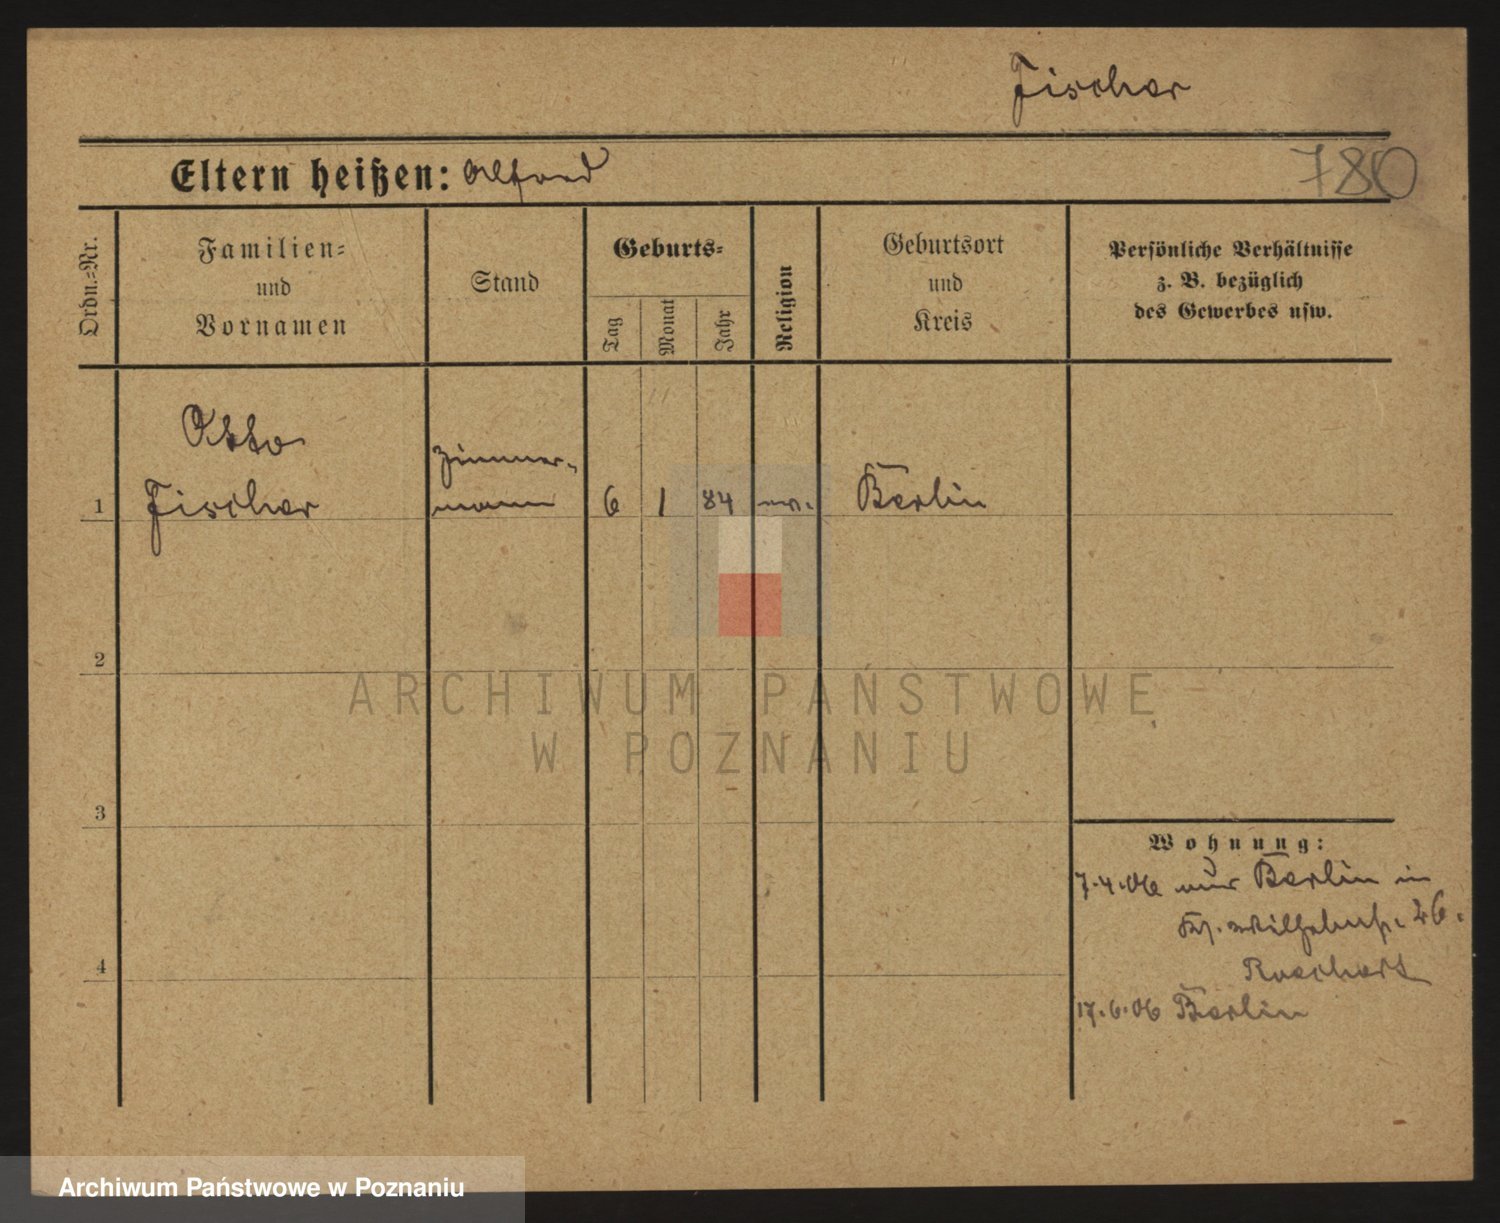 Fischer
Eltern heißen: Alfred
780
Ordn.-Nr.
Familien-
und
Vornamen
Stand
Geburts-
Tag
Monat
Jahr
Religion
Geburtsort
und
Kreis
Persönliche Verhältnisse
z. B. bezüglich
des Gewerbes usw.
Otto
Fischer
Zimmer-
mann
1
6
1
84
Berlin
2
ARCHIWUM PAŃSTWOWE
W POZNANIU
3
Wohnung:
7.4.06 Berlin in
26.
4
17.6.06 Berlin
Archiwum Państwowe w Poznaniu